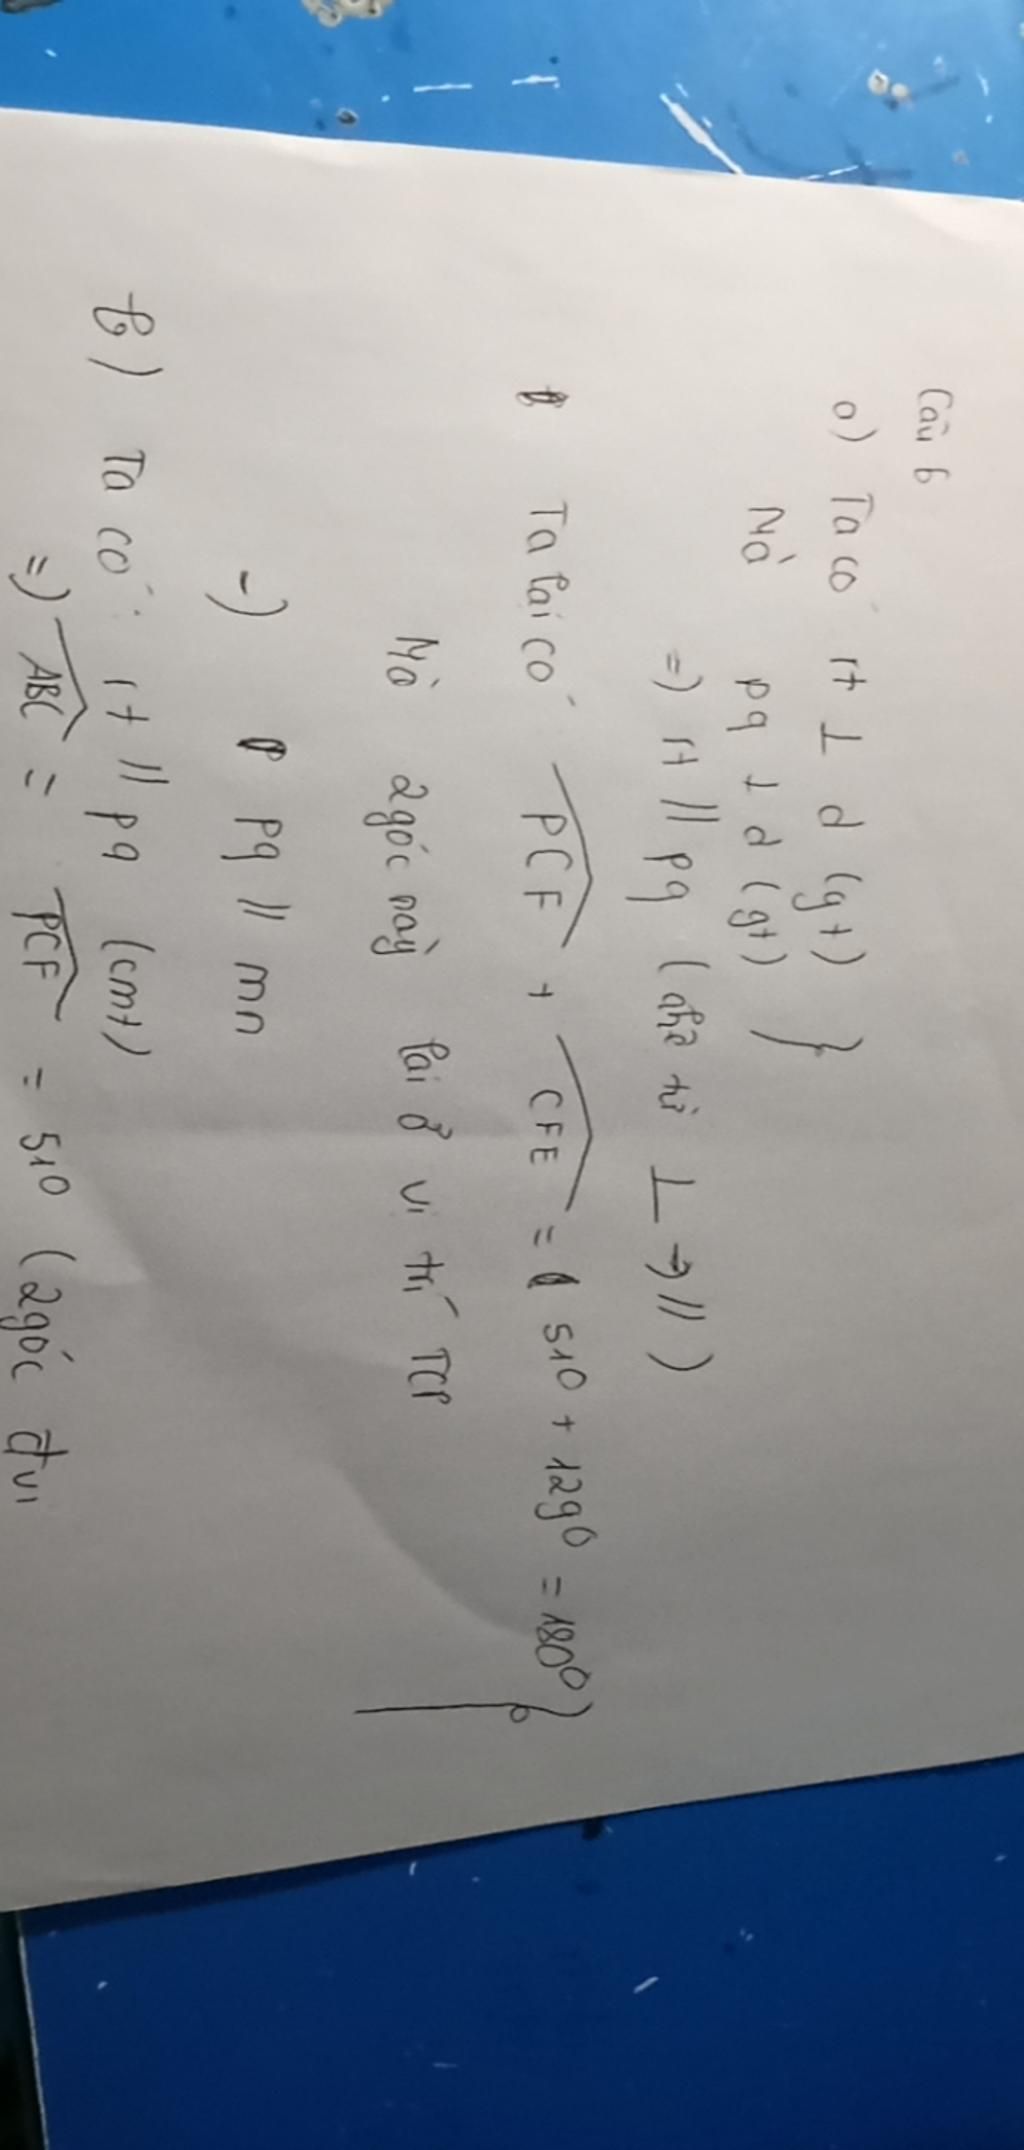 Câu 6
a) Ta có rt ⊥ d (gt) }
Mà pq ⊥ d (gt)
=) rt // pq ( từ ⊥ → // )
Ta lại có PCF + CFE = 51⁰ + 129⁰ = 180⁰ }
Mà 2 góc này lại ở vị trí TCP
-) pq // mn
b) Ta có: rt // pq (cmt)
=) ABC = PCF = 51⁰ (2 góc đvị